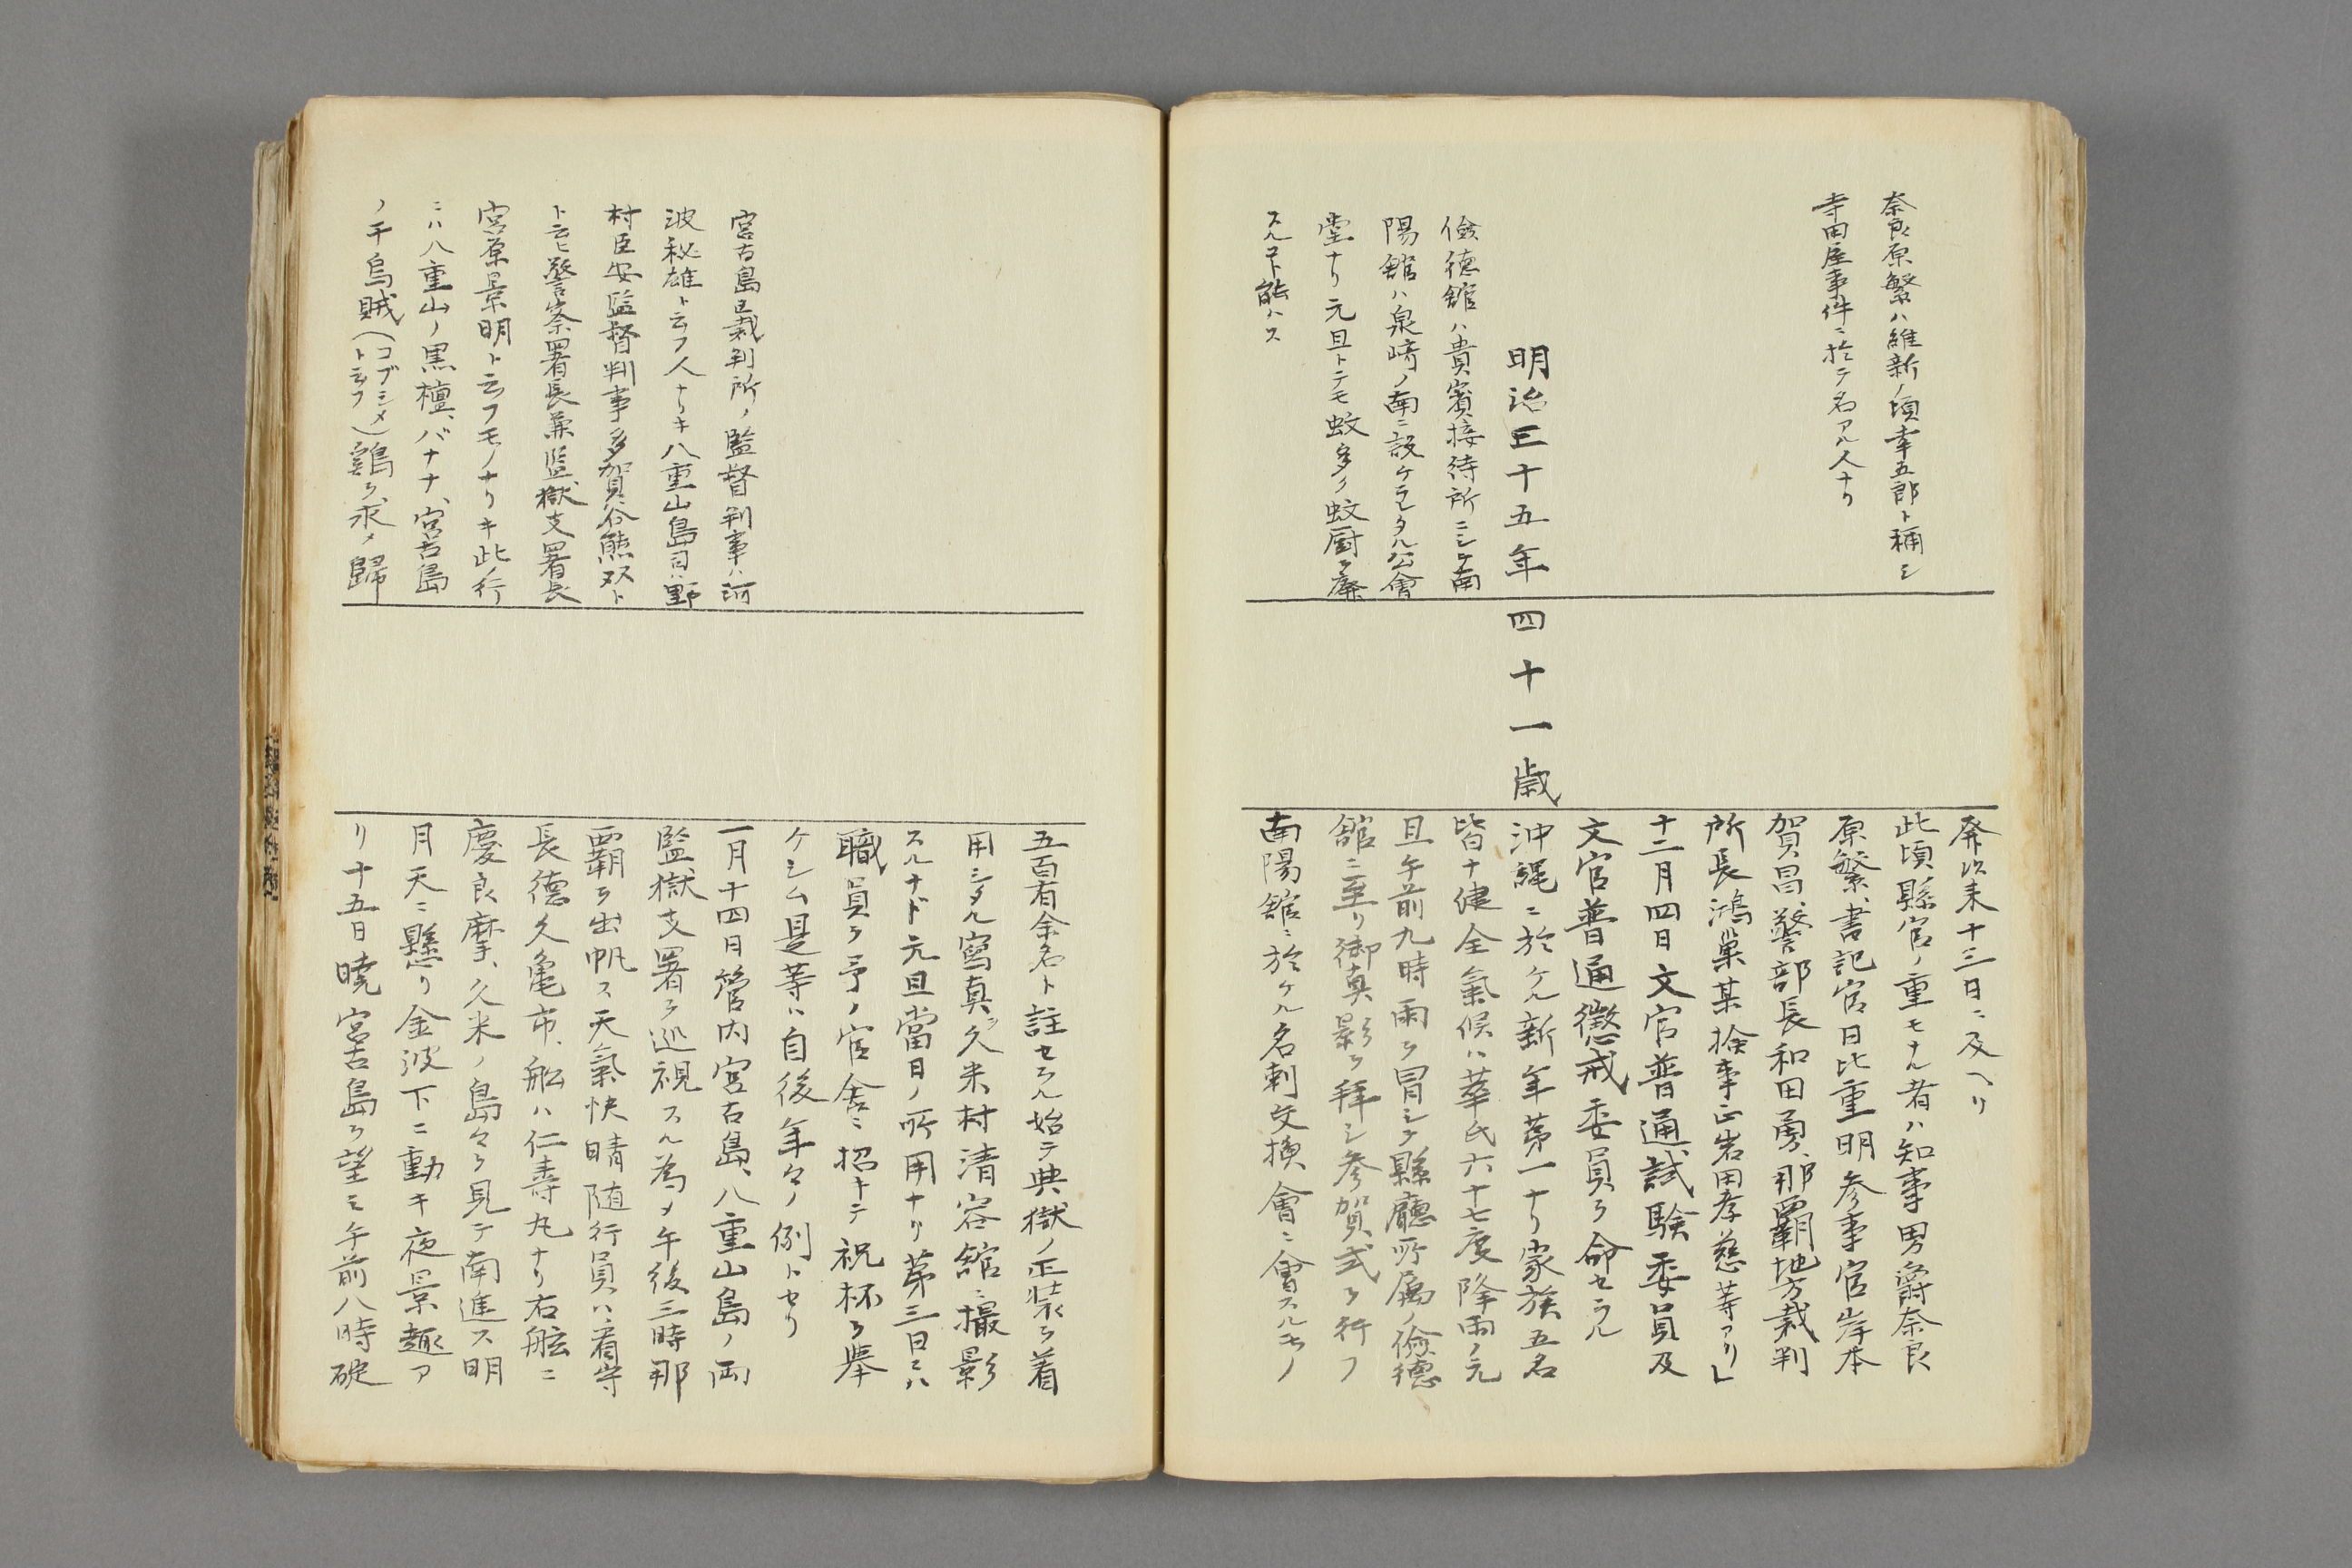 奈良原繁ハ維新ノ頃幸五郎ト稱シ
寺田屋事件ニ於テ名アル人ナリ
明治三十五年 四十一歳
儉德館ハ貴賓接待所ニシテ南
陽館ハ泉崎ノ南ニ設ケラレタル公會
堂ナリ元旦トテモ蚊多ク蚊厨ヲ廢
スルコト能ハス
発以来十三日ニ及ヘリ
此頃縣官ノ重モナル者ハ知事男爵奈良
原繁、書記官日比重明参事官岸本
賀昌、警部長和田勇、那覇地方裁判
所長鴻巣某検事正岩田孝慈等アリ」
十二月四日文官普通試験委員及
文官普通懲戒委員ヲ命セラル
沖縄ニ於ケル新年第一ナリ家族五名
皆ナ健全氣候ハ華氏六十七度降雨ノ元
旦午前九時雨ヲ冒シテ縣廳所属ノ儉德
舘ニ至リ御真影ヲ拜シ参賀式ヲ行フ
南陽舘ニ於ケル名刺交換會ニ會スルモノ
宮古島區裁判所ノ監督判事ハ河
波秘雄ト云フ人ナリキ八重山島司ハ野
村臣安監督判事多賀谷熊双ト
ト云ヒ警察署長兼監獄支署長
宮原景明ト云フモノナリキ此ノ行
ニハ八重山ノ黒檀、バナナ、宮古島
ノ干烏賊(コブシメ)トモ云フ鶏ヲ求メ歸
五百有余名ト註セラル始テ典獄ノ正装ヲ着
用シタル寫真ヲ久米村清容舘ニ撮影
スルナド元旦當日ノ所用ナリ第三日ニハ
職員ヲ予ノ官舎ニ招キテ祝杯ヲ擧
ケシム是等ハ自後年々ノ例トセリ
一月十四日管内宮古島、八重山島ノ両
監獄支署ヲ巡視スル為メ午後三時那
覇ヲ出帆ス天氣快晴随行員ハ看守
長德久亀市、船ハ仁壽丸ナリ右舷ニ
慶良摩、久米ノ島々ヲ見テ南進ス明
月天ニ懸リ金波下ニ動キ夜景趣ア
リ十五日暁宮古島ヲ望ミ午前八時碇